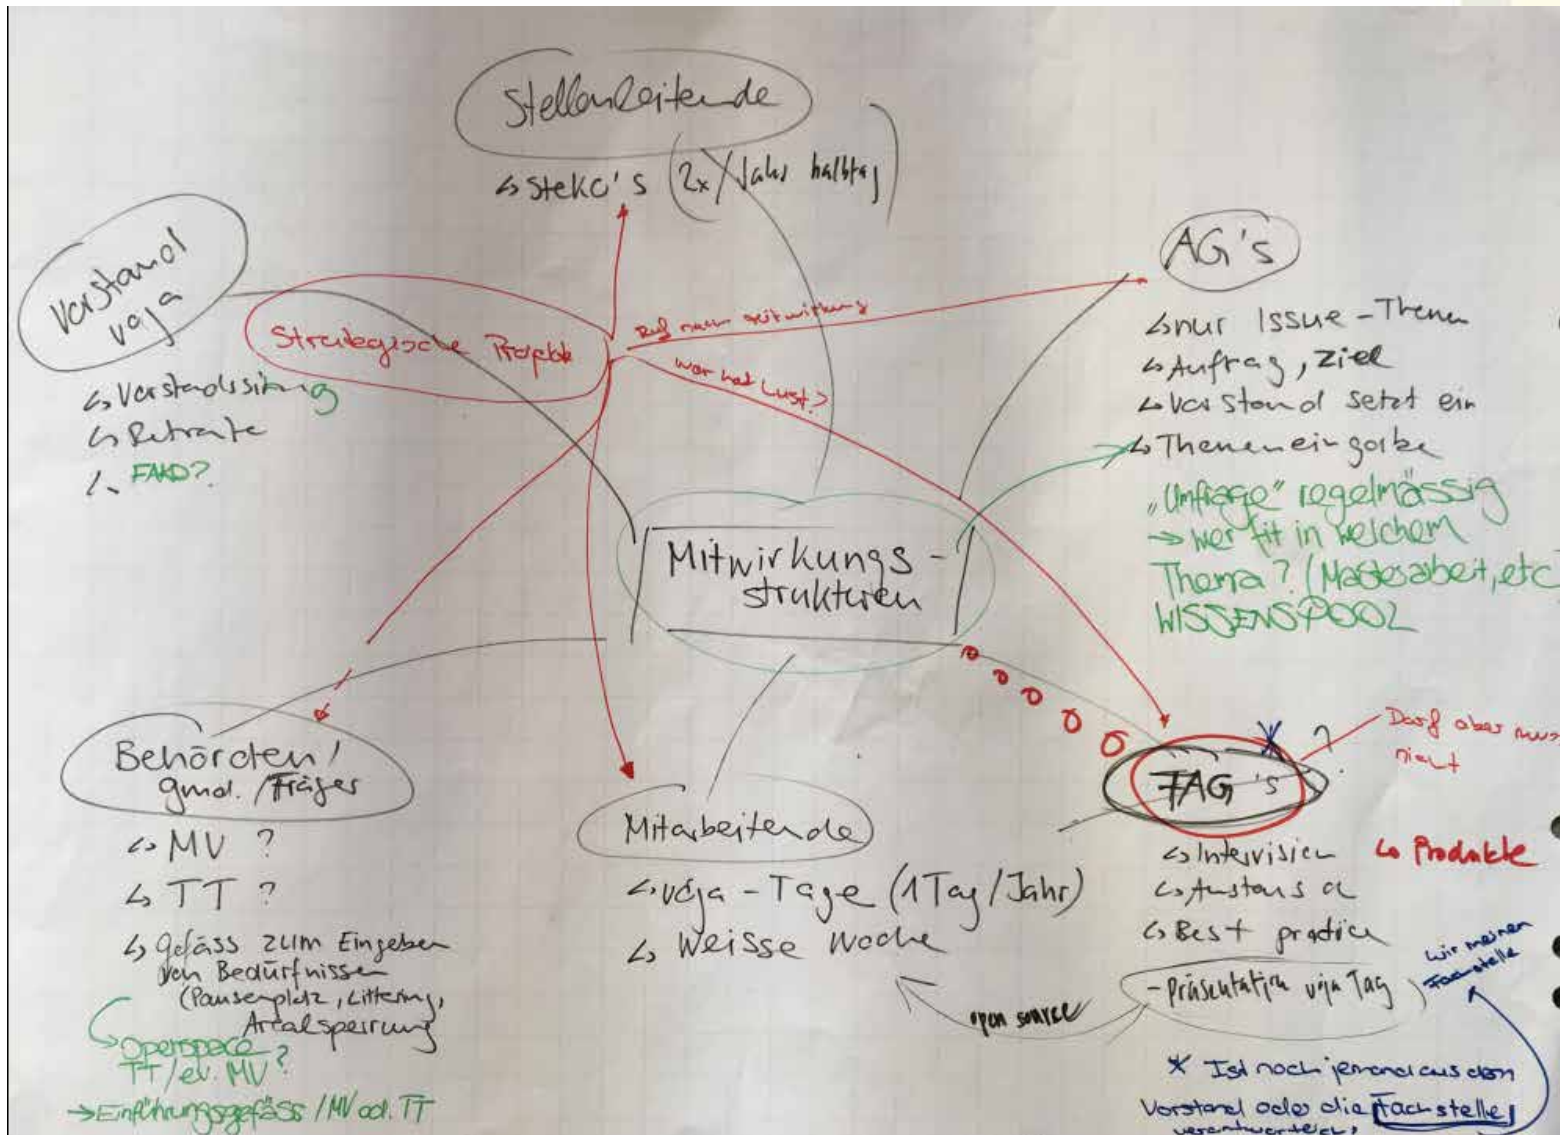 Stellenleitende
↳ Steko's (2x/Jahr halbtag)
Vorstand
voja
↳ Vorstandssitzung
↳ Retraite
↳ FAKO?
Strategische Projekte
Ruf nach Mitwirkung
wer hat Lust?
AG's
↳ nur Issue-Themen
↳ Auftrag, Ziel
↳ Vorstand setzt ein
↳ Themeneingabe
„Umfrage" regelmässig
→ wer fit in welchem
Thema? (Masterarbeit, etc
WISSENSPOOL
Mitwirkungs-
strukturen
Behörden/
gmd. /Träger
↳ MV ?
↳ TT ?
↳ Gefäss zum Eingeben
von Bedürfnissen
(Pausenplatz, Littering,
Arealsperrung
Openspace
TT/ev. MV?
→ Einführungsgefäss / MV od. TT
Mitarbeitende
↳ voja-Tage (1Tag/Jahr)
↳ Weisse Woche
FAG's
?
Darf aber muss
nicht
↳ Intervision
↳ Produkte
↳ Austausch
↳ Best practice
- Präsentation voja Tag
open source
wir meinen
Fachstelle
* Ist noch jemand aus dem
Vorstand oder die Fachstelle
verantwortlich?